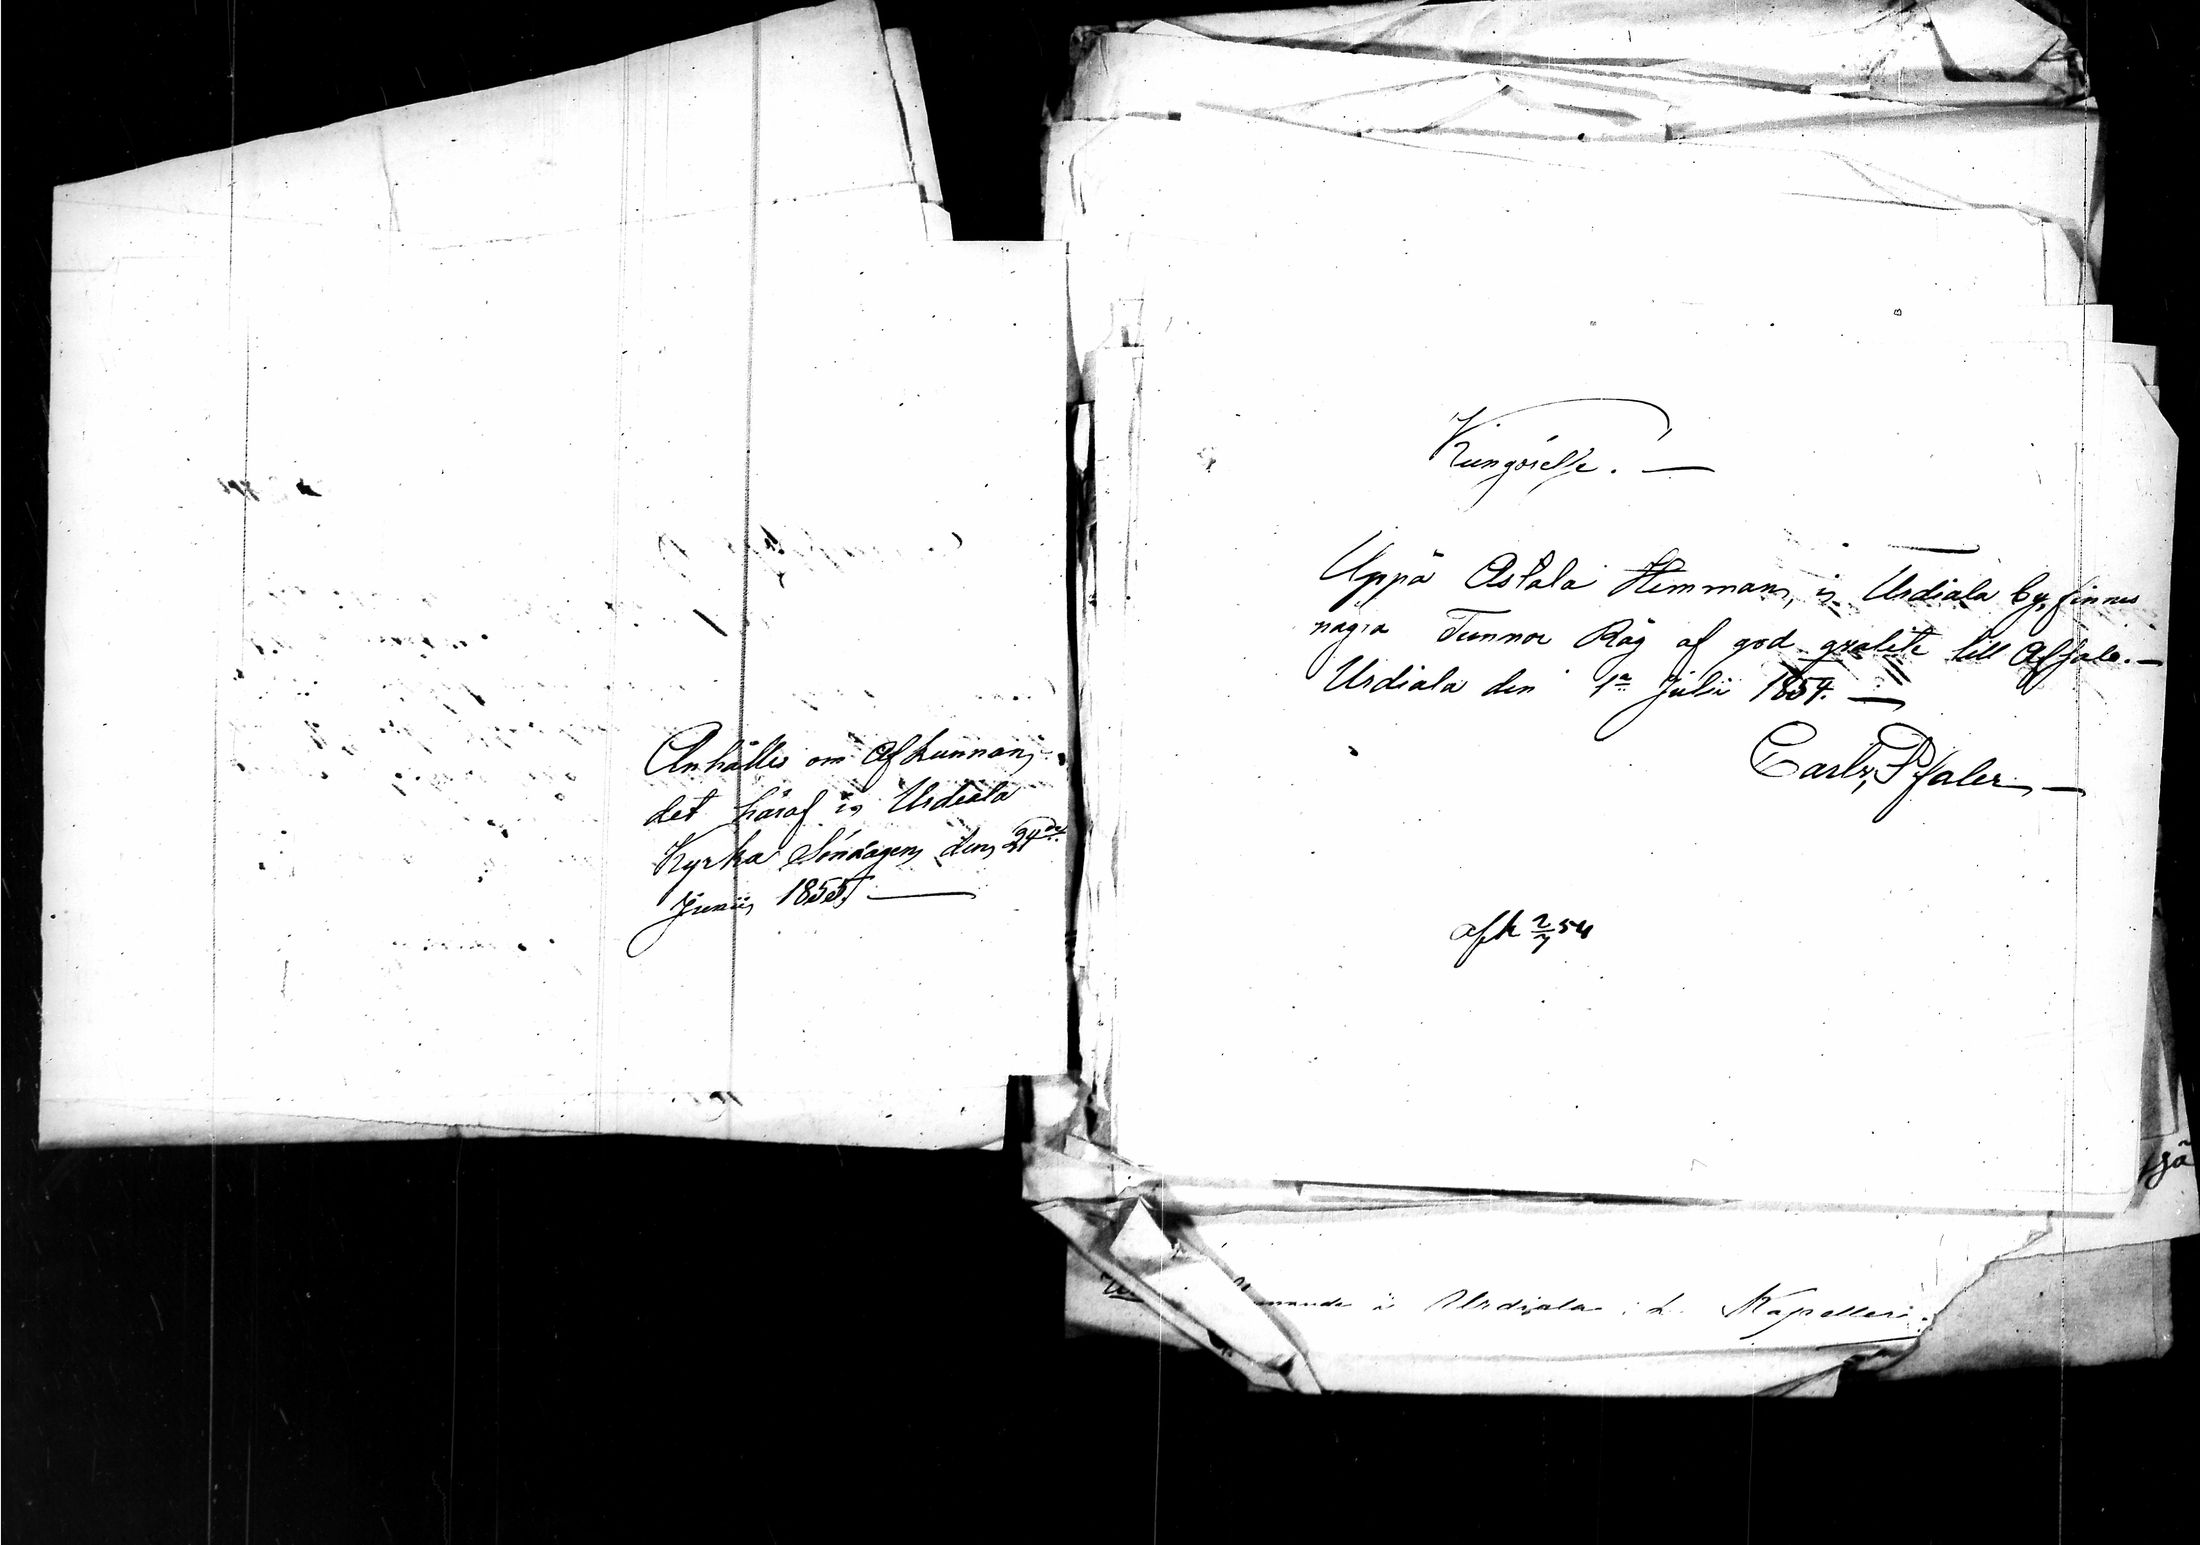 Anhålles om Afkunnan,
det häraf i Urdiala
Kyrka Söndagen den 24de
Junii 1855.
Kungörelse.
Uppå Astala Hemman, i Urdiala by, finnes
några Tunnor Råg af god qvalité till Afsalu.
Urdiala den 1a Julii 1854.
Carl Pfaler
afk 2/7 54
i Urdiala Kapellar